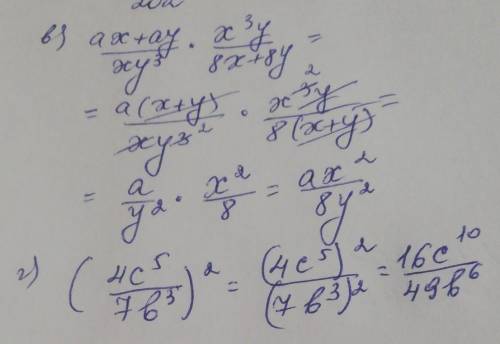 в) (ax+ay)/(xy³) · (x³y)/(8x+8y) =
= (a(x+y))/(xy³ ²) · (x³ ² y)/(8(x+y)) =
= a/y² · x²/8 = ax²/8y²
г) (4c⁵/7b³)² = (4c⁵)²/(7b³)² = 16c¹⁰/49b⁶